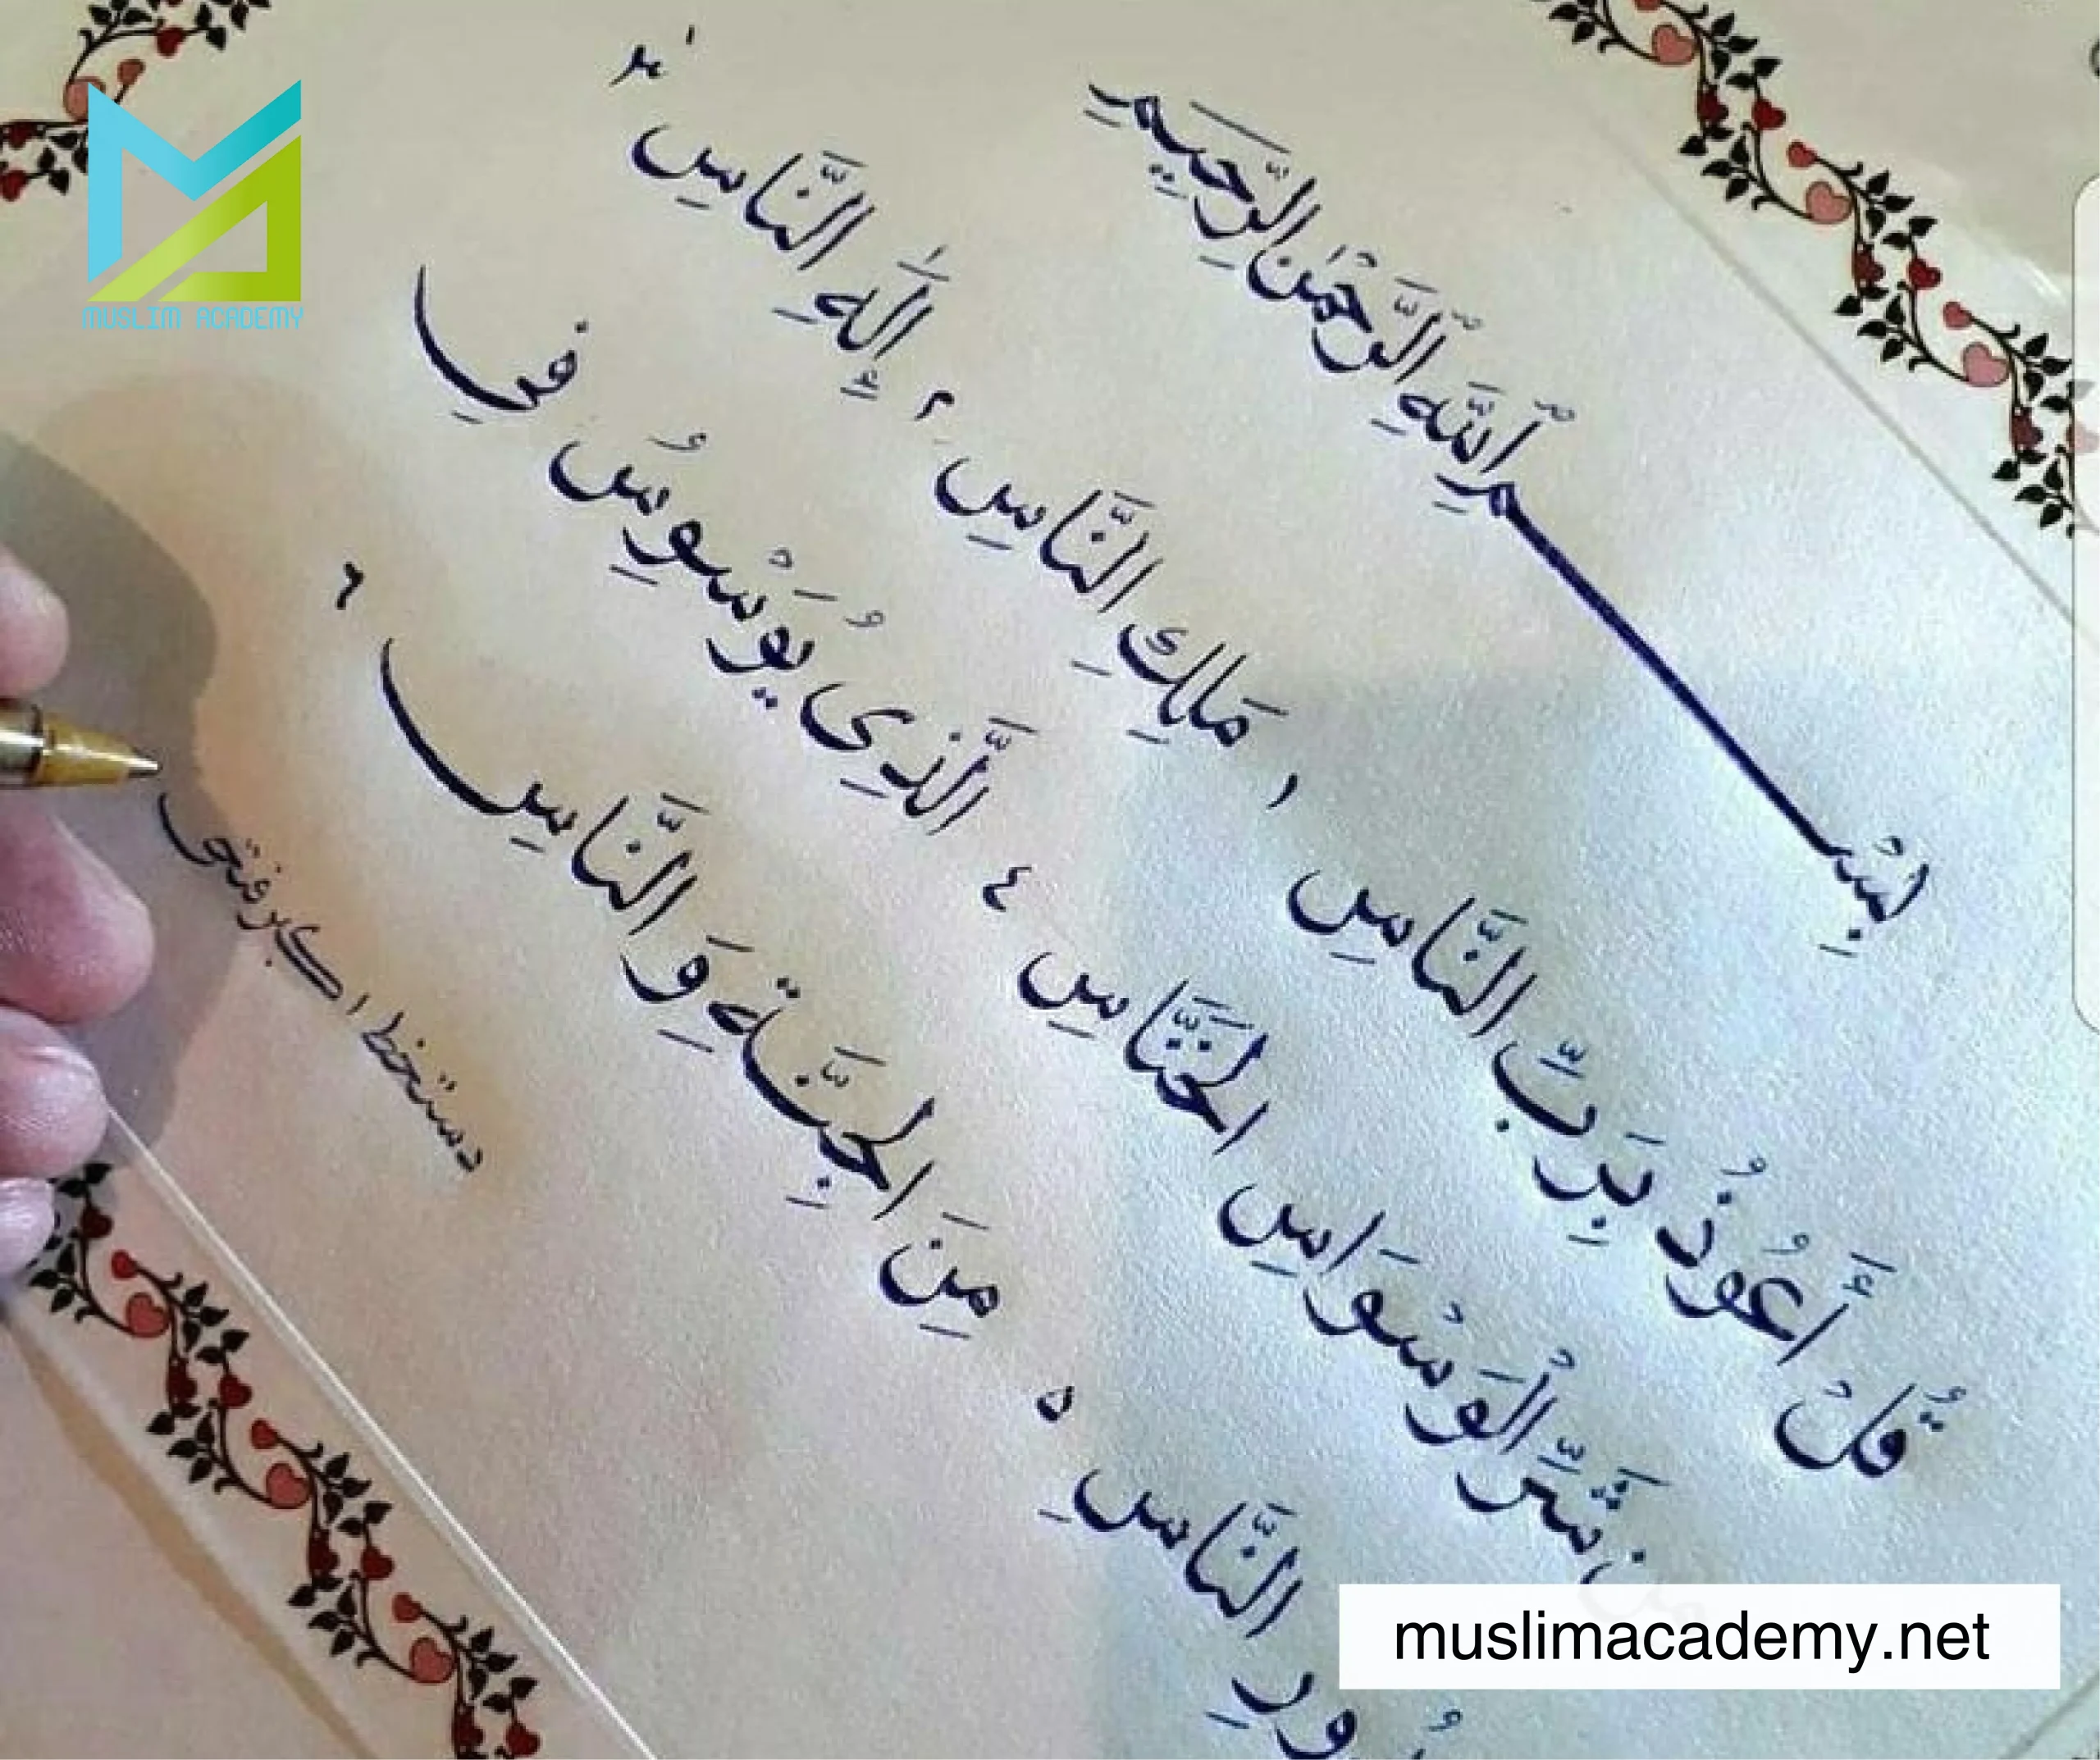 MUSLIM ACADEMY
بِسْمِ ٱللَّهِ ٱلرَّحْمَٰنِ الرَّحِيمِ
قُلْ أَعُوذُ بِرَبِّ النَّاسِ ١ مَلِكِ النَّاسِ ٢ إِلَٰهِ النَّاسِ ٣
شَرِّ الْوَسْوَاسِ الْخَنَّاسِ ٤ الَّذِی يُوَسْوِسُ فِی
النَّاسِ ٥ مِنَ الْجِنَّةِ وَ النَّاسِ ٦
دستخط اکبر فتحی
muslimacademy.net